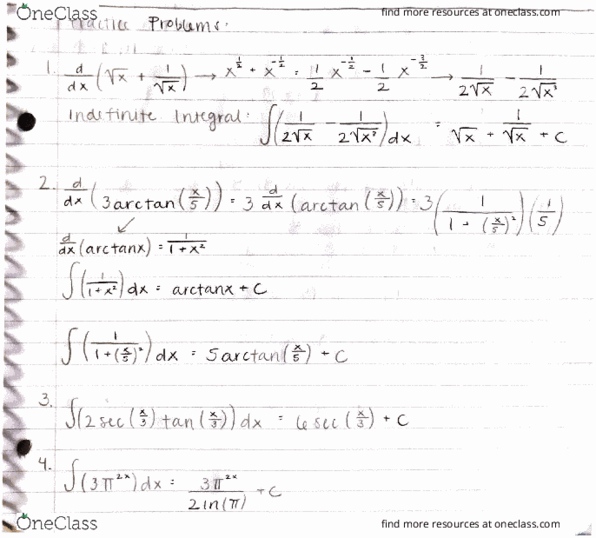 OneClass
find more resources at oneclass.com
Practice Problems:
1. d/dx (√x + 1/√x) → x^(1/2) + x^(-1/2) = 1/2 x^(-1/2) - 1/2 x^(-3/2) → 1/(2√x) - 1/(2√x³)
Indefinite Integral: ∫(1/(2√x) - 1/(2√x³))dx = √x + 1/√x + C
2. d/dx (3arctan(x/5)) = 3 d/dx (arctan(x/5)) = 3(1/(1 + (x/5)²))(1/5)
d/dx (arctanx) = 1/(1+x²)
∫(1/(1+x²))dx = arctanx + C
∫(1/(1+(x/5)²))dx = 5arctan(x/5) + C
3. ∫(2sec(x/3)tan(x/3))dx = 6sec(x/3) + C
4. ∫(3π^(2x))dx = 3π^(2x)/(2ln(π)) + C
OneClass
find more resources at oneclass.com